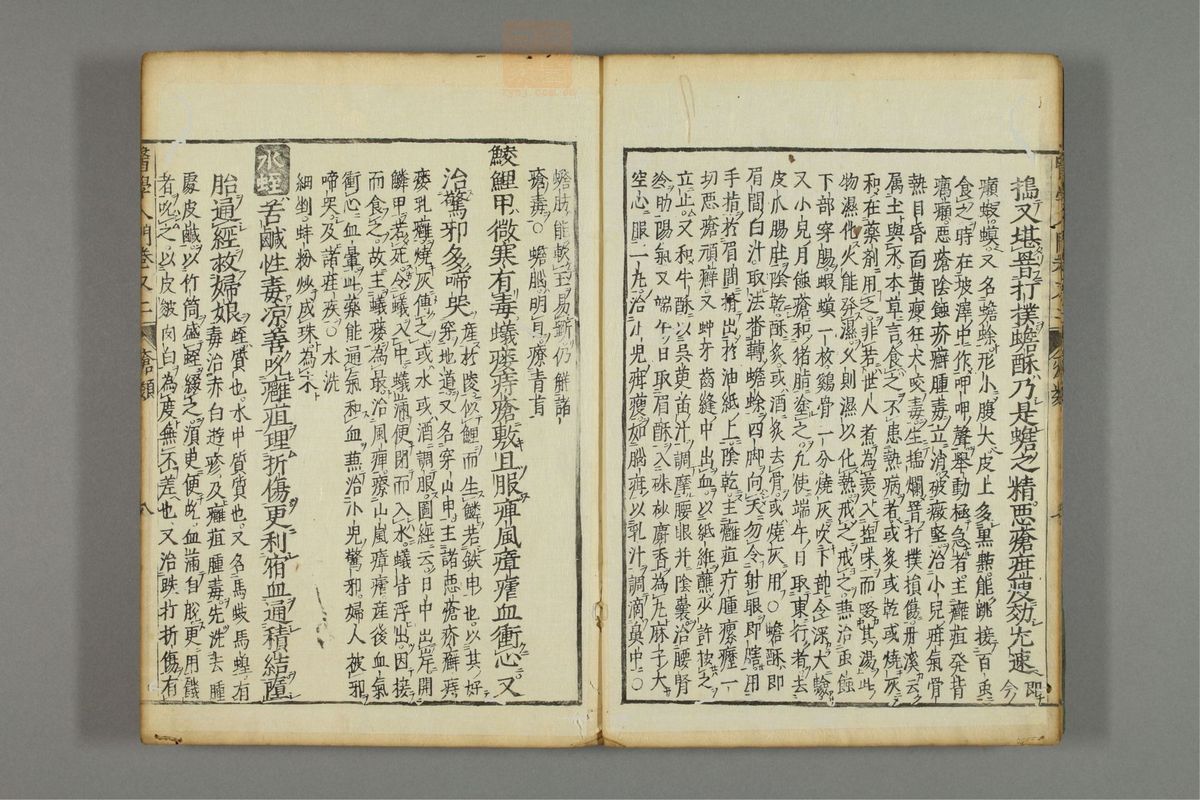 搗又堪啚打撲蟾酥乃是蟾之精惡瘡疳瘦効尤速即今
癩蝦蟆又名蟾蜍形小腹大皮上多黒㸃能跳接百虫
食之時在坡澤中作呷呷聲舉動極急者主癰疽発背
癘癩惡瘡陰蝕疥癬腫毒立消破癥堅治小兒疳氣骨
熱目昏面黄瘦狂犬咬毒生搗爛啚打撲損傷丹溪云
属土與水本草言食之不患熱病者或炙或乾或燒灰
和在藥劑用之非若世人煮為羹入塩味而啜其湯此
物濕化火能発濕久則濕以化熱戒之戒之兼治虫蝕
下部穿腸蝦蟆一枚鷄骨一分燒灰吹下部令深大驗
又小兒月蝕瘡和猪脂塗之凡使端午日取東行者去
皮爪腸肚陰乾酥炙或酒炙去骨或燒灰用○蟾酥即
眉間白汁取法番轉蟾蜍四脚向天勿令射眼即瞎用
手揩於眉間擠出於油紙上陰乾主癰疽疔腫瘰癧一
切惡瘡頑癬又蚛牙齒縫中出血以紙紝蘸少許按之
立止又和牛酥以吳茰苗汁調摩腰眼并陰囊治腰腎
冷助陽氣又端午日取眉酥入硃砂麝香為丸麻子大
空心服一丸治小兒疳瘦如腦疳以乳汁調滴鼻中○
蟾肪能軟玉易斵仍解諸
瘡毒○蟾腦明目療青盲
鯪鯉甲微寒有毒蟻瘻痔瘡敷且服痺風瘴瘧血衝心又
治驚邪多啼哭産於陵似鯉而生鱗若鉄甲也以其好
穿地道又名穿山甲主諸惡瘡疥癬痔
瘻乳癰燒灰傅之或水或酒調服圖經云日中出岸開
鱗甲若死令蟻入中蟻滿便閉而入水蟻皆浮出因接
而食之故主蟻瘻為最治風痺療山嵐瘴瘧産後血氣
衝心血暈此藥能通氣和血兼治小兒驚邪婦人被邪
啼哭及諸疰疾○水洗
細剉蚌粉炒成珠為末
水蛭苦鹹性毒凉善吮癰疽理折傷更利宿血通積結墮
胎通經救婦娘蛭質也水中質質也又名馬蟥馬蝗有
毒治赤白遊疹及癰疽腫毒先洗去腫
處皮鹹以竹筒盛蛭綴之湏更便咬血滿自脫更用饑
者吮之以皮皺肉白為度無不差也又治跌打折傷有
醫學入門卷又二 瘡類 八